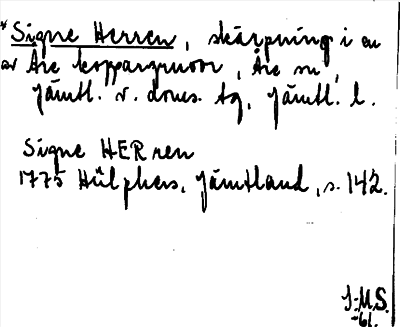 *Signe Herren, skärpning i en
av Åre koppargruvor, Åre sn,
Jämtl. v. doms. tg, Jämtl. l.
Signe HERren
1775 Hülphers, Jämtland, s. 142.
I.M.S.
-61.